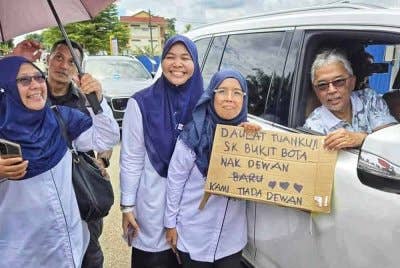 DAULAT TUANKU!
SK BUKIT BOTA
NAK DEWAN
BARU
KAMI TIADA DEWAN